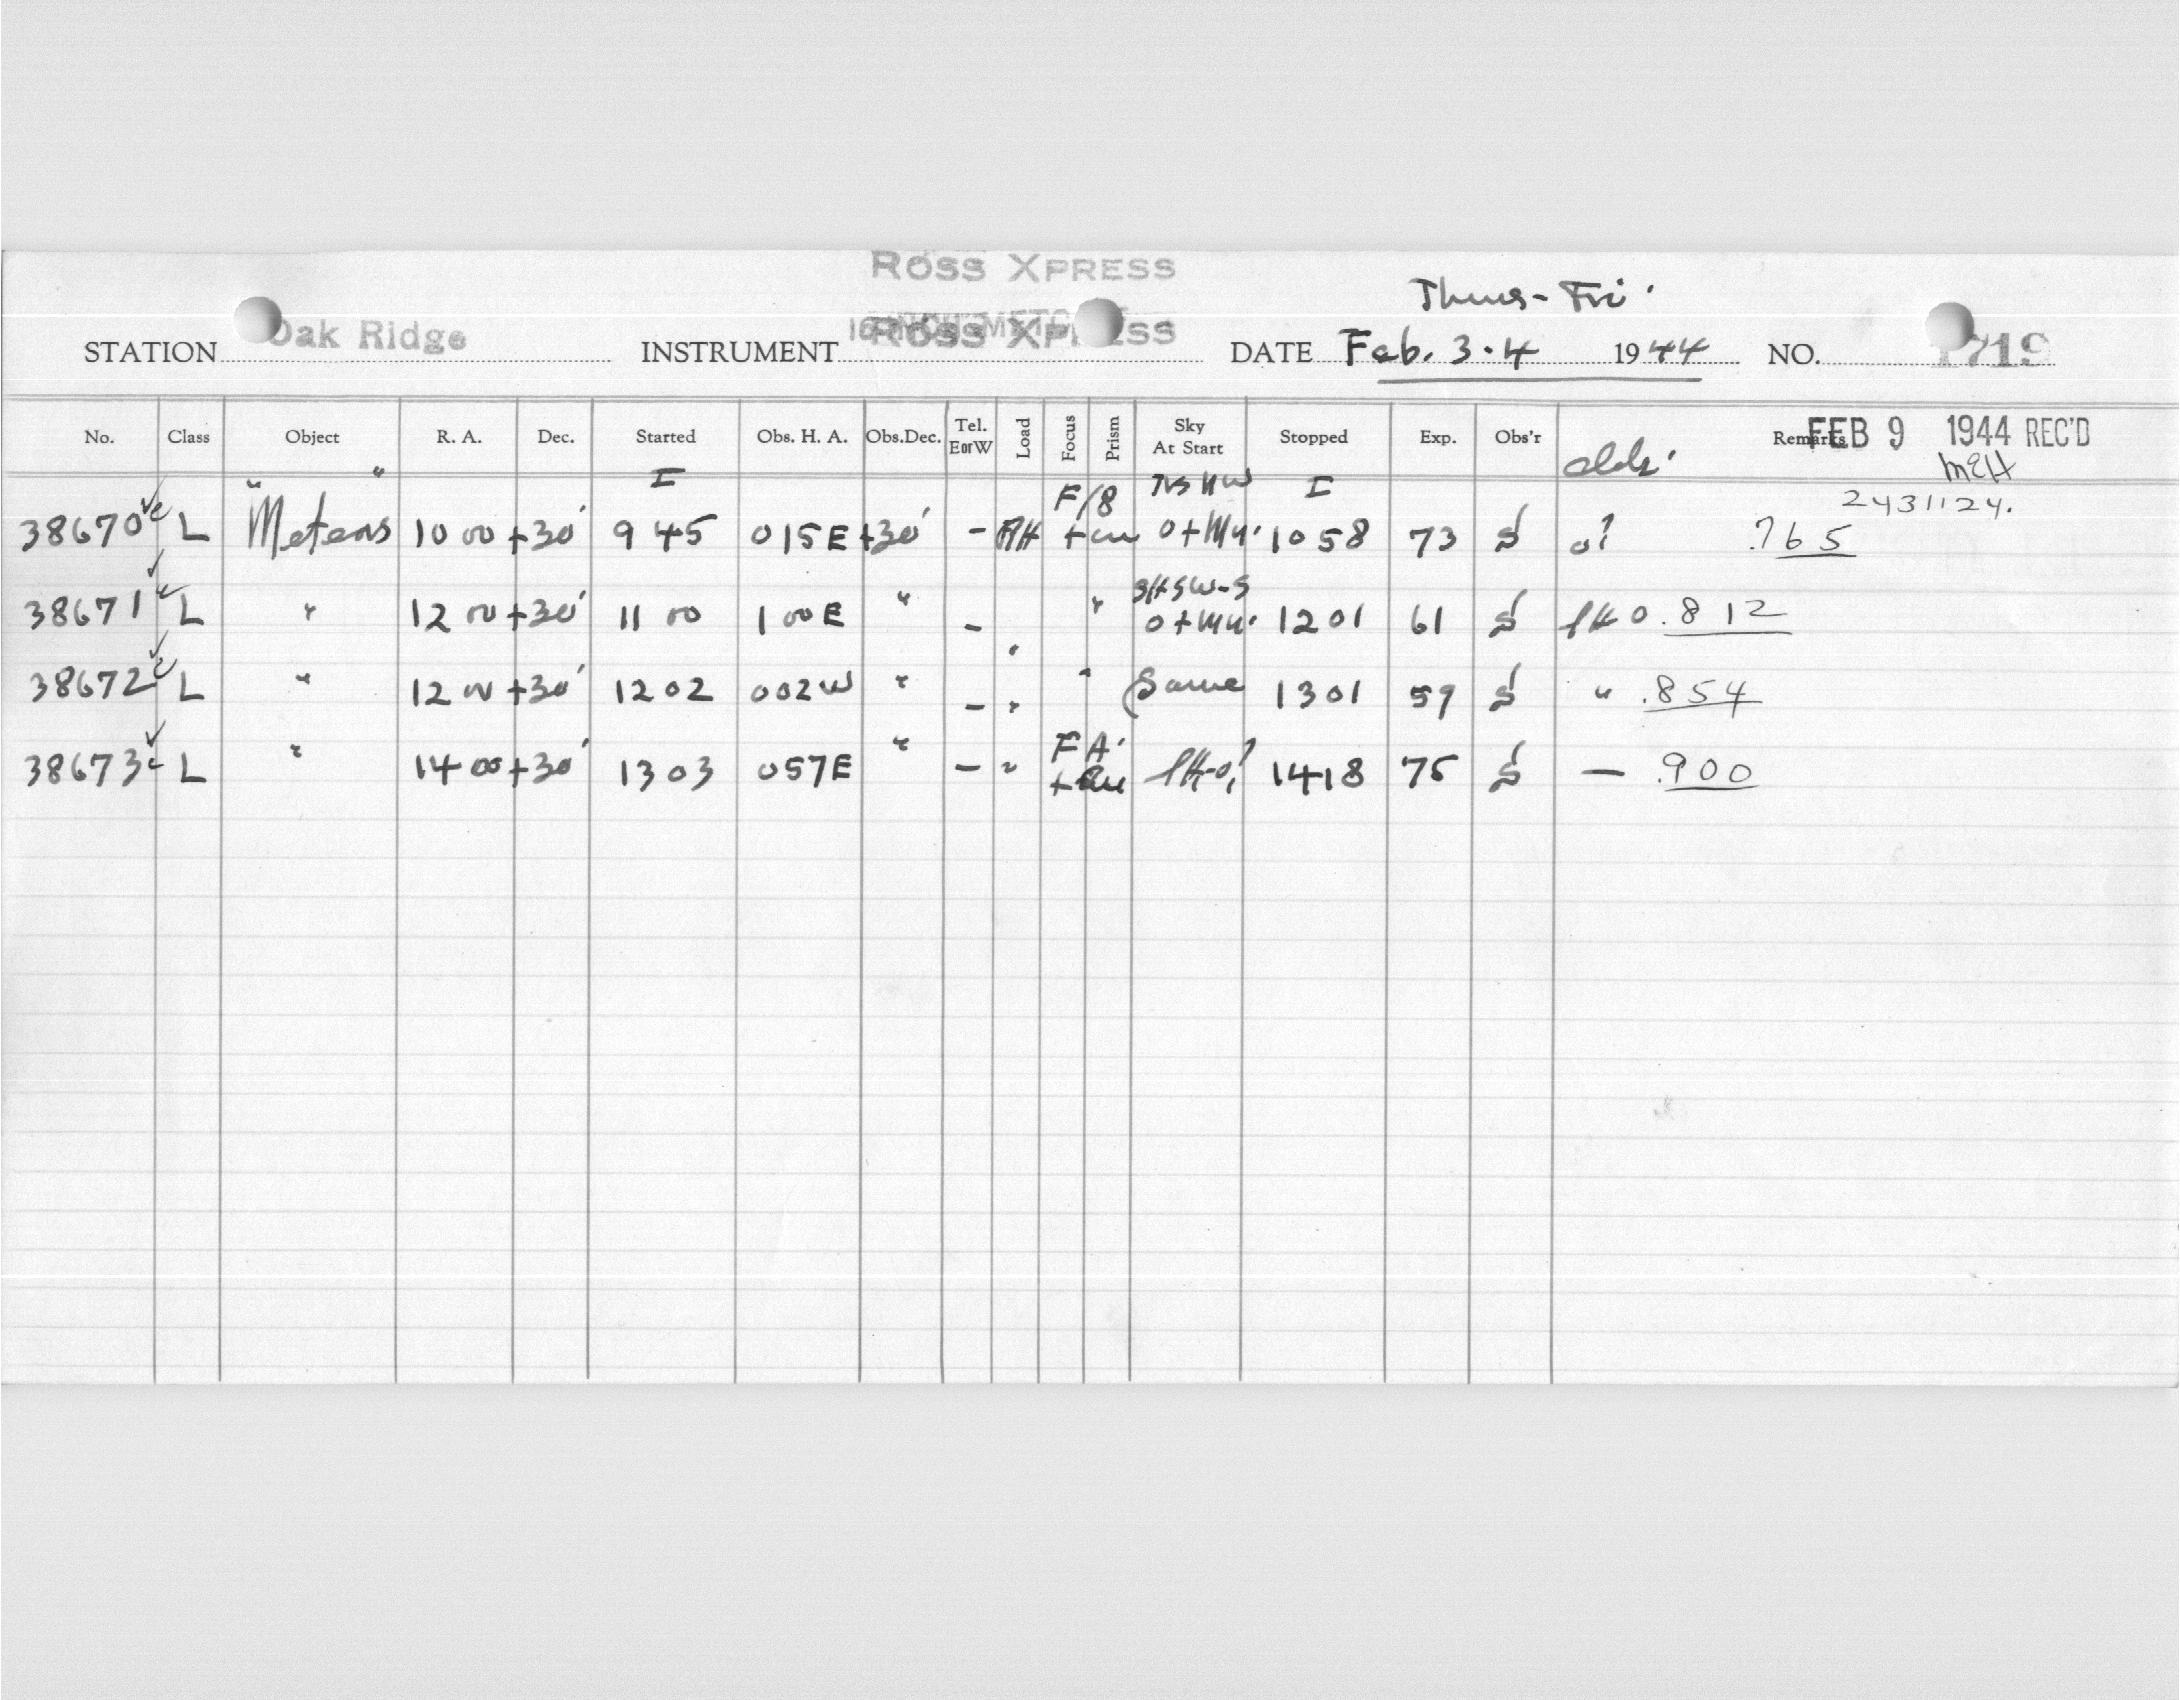 ROSS XPRESS
Thurs - Fri.
STATION Oak Ridge INSTRUMENT ROSS XPRESS DATE Feb. 3-4 1944 NO. 1719
No. Class Object R. A. Dec. Started Obs. H. A. Obs.Dec. Tel. EorW Load Focus Prism Sky At Start Stopped Exp. Obs'r Remarks FEB 9 1944 REC'D
MEH
I F/8 I 2431124.
38670 L "Meteors" 10 00 +30° 9 45 0 15 E +30° - 10 58 73 S .765
38671 L " 12 00 +30° 11 00 1 00 E " - " " 12 01 61 S .812
38672 L " 12 00 +30° 12 02 0 02 W " - " " Same 13 01 59 S " .854
38673 L " 14 00 +30° 13 03 0 57 E " - " 14 18 75 S — .900